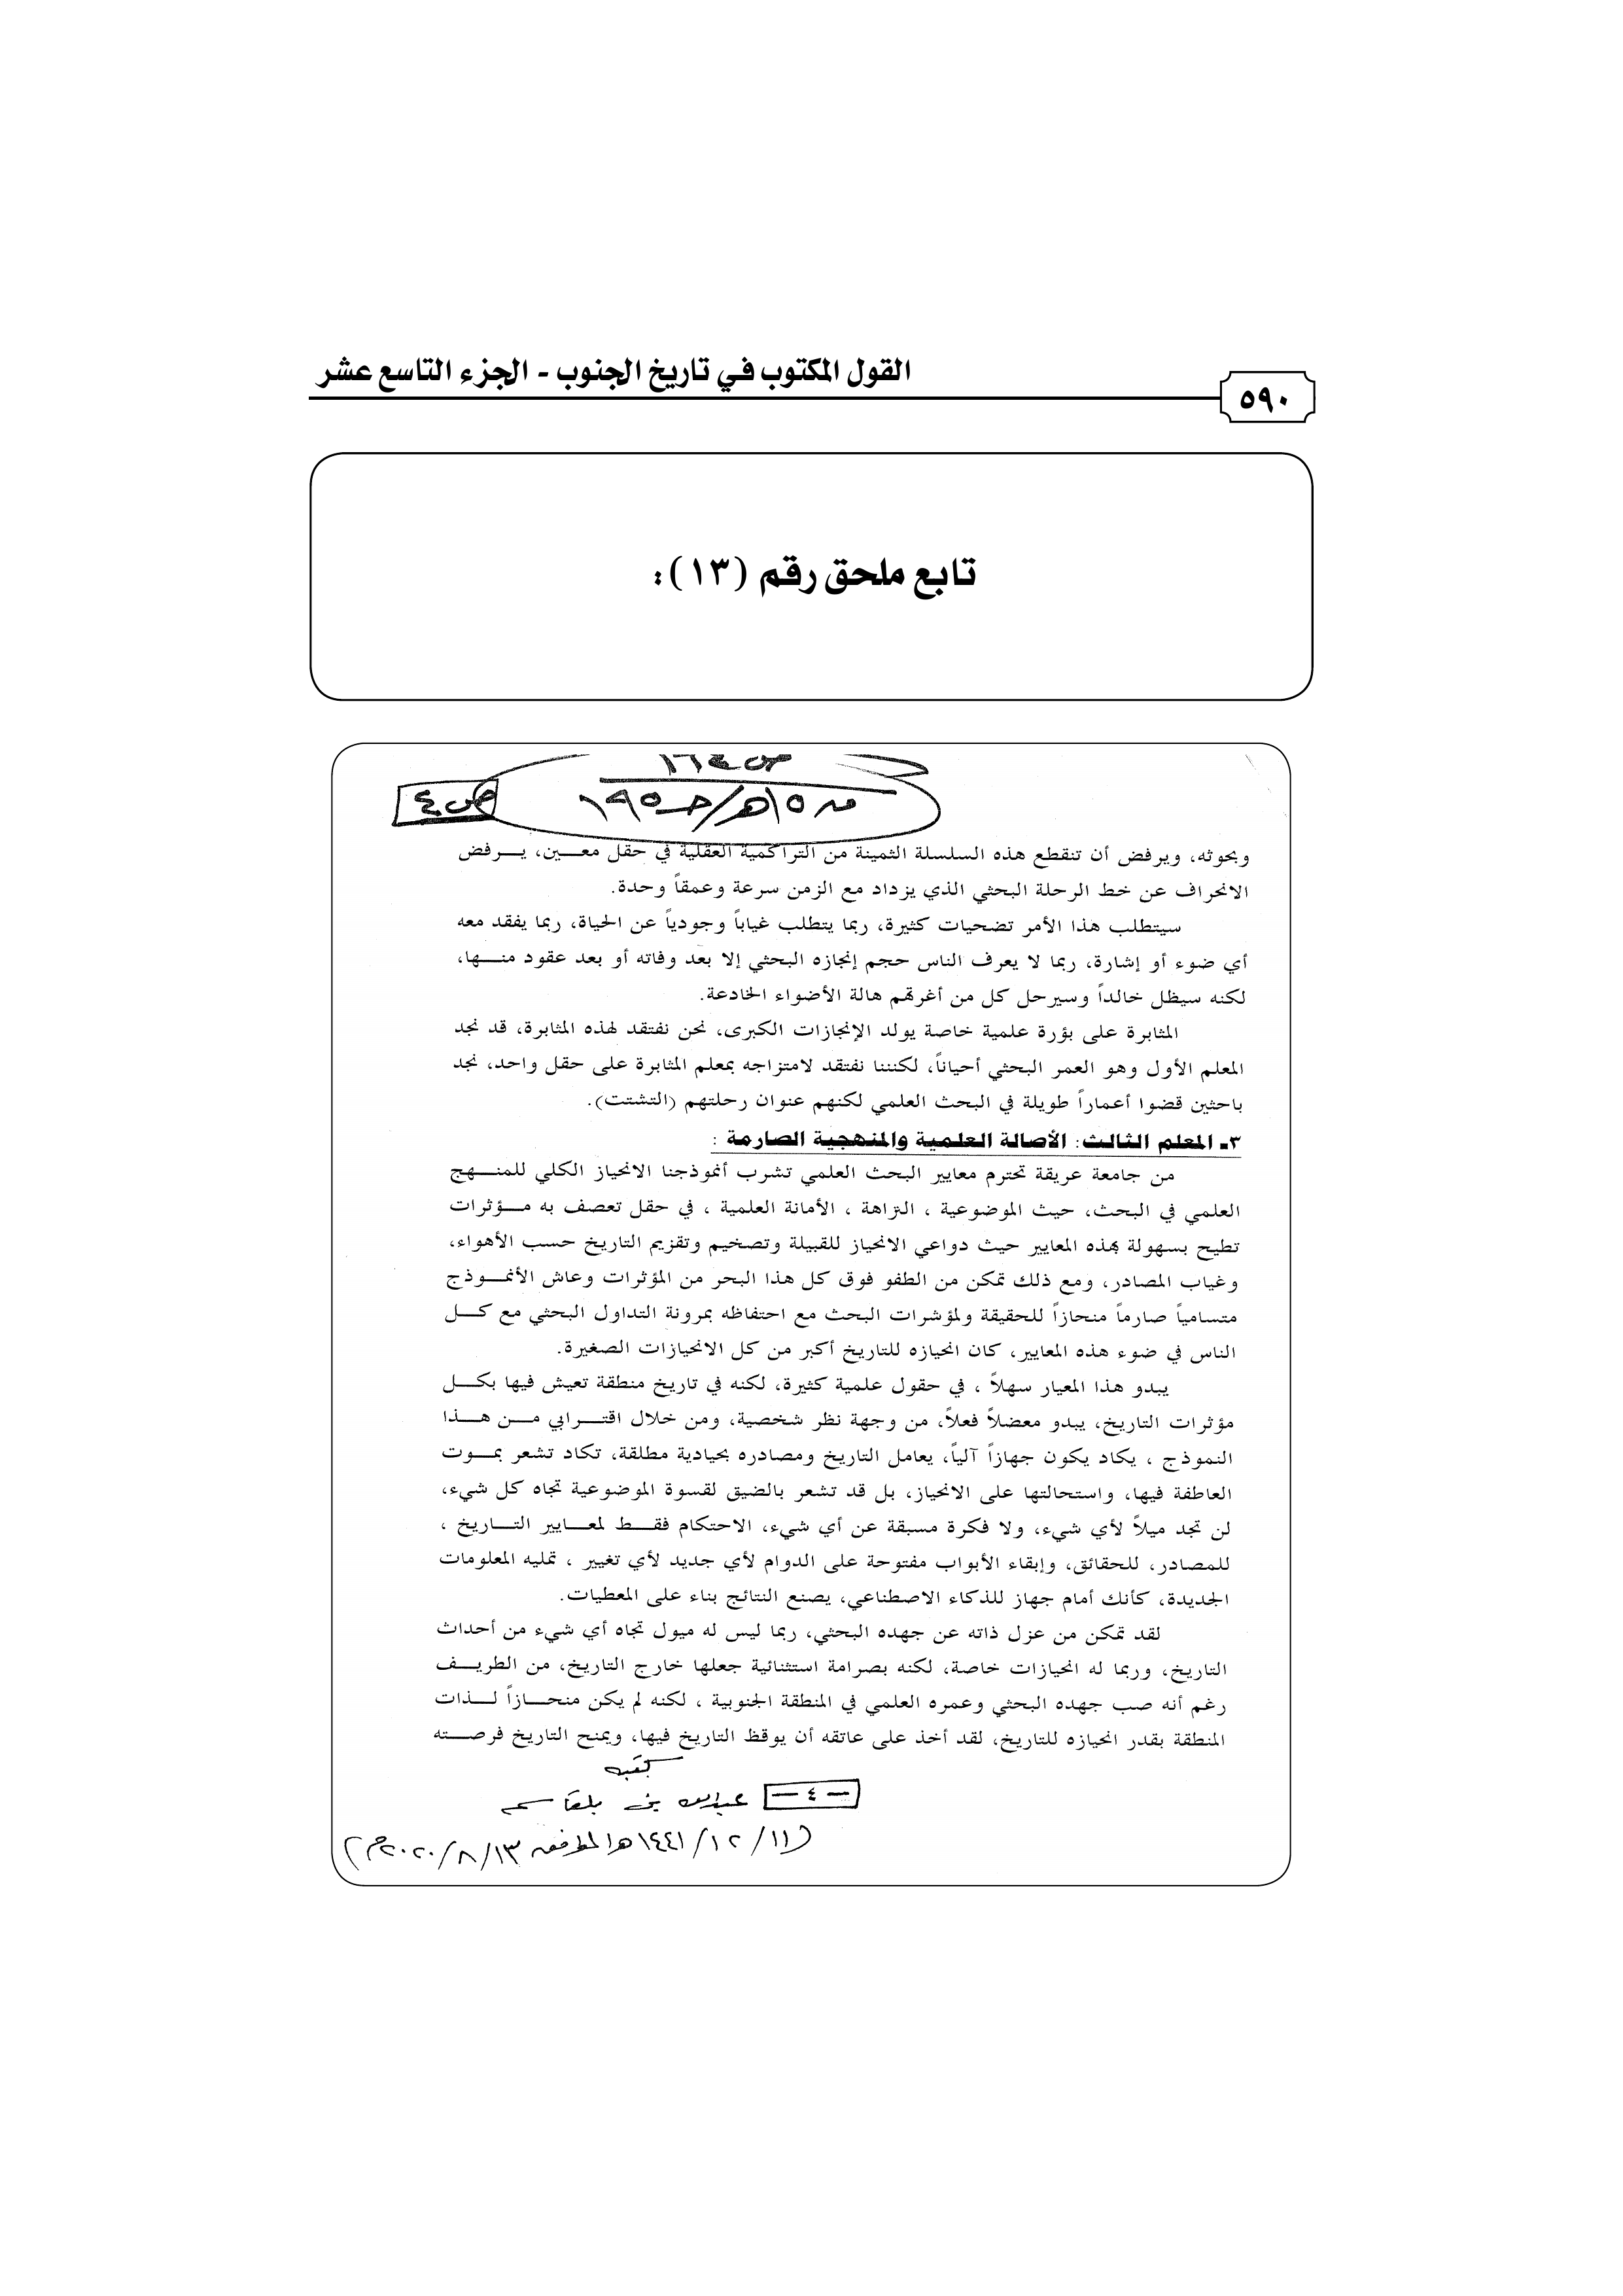 القول المكتوب في تاريخ الجنوب - الجزء التاسع عشر
٥٩٠
تابع ملحق رقم (١٣):
ص٤
وبحوثه، ويرفض أن تنقطع هذه السلسلة الثمينة من التراكمية العقلية في حقل معين، يرفض
الانحراف عن خط الرحلة البحثي الذي يزداد مع الزمن سرعة وعمقاً وحدة.
سيتطلب هذا الأمر تضحيات كثيرة، ربما يتطلب غياباً وجودياً عن الحياة، ربما يفقد معه
أي ضوء أو إشارة، ربما لا يعرف الناس حجم إنجازه البحثي إلا بعد وفاته أو بعد عقود منها،
لكنه سيظل خالداً وسيرحل كل من أغرقم هالة الأضواء الخادعة.
المثابرة على بؤرة علمية خاصة يولد الإنجازات الكبرى، نحن نفتقد لهذه المثابرة، قد نجد
المعلم الأول وهو العمر البحثي أحياناً، لكننا نفتقد لامتزاجه بمعلم المثابرة على حقل واحد، نجد
باحثين قضوا أعماراً طويلة في البحث العلمي لكنهم عنوان رحلتهم (التشتت).
٣- المعلم الثالث: الأصالة العلمية والمنهجية الصارمة :
من جامعة عريقة تحترم معايير البحث العلمي تشرب أنموذجنا الانحياز الكلي للمنهج
العلمي في البحث، حيث الموضوعية ، النزاهة ، الأمانة العلمية ، في حقل تعصف به مؤثرات
تطيح بسهولة بهذه المعايير حيث دواعي الانحياز للقبيلة وتصخيم وتقزيم التاريخ حسب الأهواء،
وغياب المصادر، ومع ذلك تمكن من الطفو فوق كل هذا البحر من المؤثرات وعاش الأنموذج
متسامياً صارماً منحازاً للحقيقة ولمؤشرات البحث مع احتفاظه بمرونة التداول البحثي مع كل
الناس في ضوء هذه المعايير، كان انحيازه للتاريخ أكبر من كل الانحيازات الصغيرة.
يبدو هذا المعيار سهلاً ، في حقول علمية كثيرة، لكنه في تاريخ منطقة تعيش فيها بكل
مؤثرات التاريخ، يبدو معضلاً فعلاً، من وجهة نظر شخصية، ومن خلال اقترابي من هذا
النموذج ، يكاد يكون جهازاً آلياً، يعامل التاريخ ومصادره بحيادية مطلقة، تكاد تشعر بموت
العاطفة فيها، واستحالتها على الانحياز، بل قد تشعر بالضيق لقسوة الموضوعية تجاه كل شيء،
لن تجد ميلاً لأي شيء، ولا فكرة مسبقة عن أي شيء، الاحتكام فقط لمعايير التاريخ ،
للمصادر، للحقائق، وإبقاء الأبواب مفتوحة على الدوام لأي جديد لأي تغيير ، تمليه المعلومات
الجديدة، كأنك أمام جهاز للذكاء الاصطناعي، يصنع النتائج بناء على المعطيات.
لقد تمكن من عزل ذاته عن جهده البحثي، ربما ليس له ميول تجاه أي شيء من أحداث
التاريخ، وربما له انحيازات خاصة، لكنه بصرامة استثنائية جعلها خارج التاريخ، من الطريف
رغم أنه صب جهده البحثي وعمره العلمي في المنطقة الجنوبية ، لكنه لم يكن منحازاً لذات
المنطقة بقدر انحيازه للتاريخ، لقد أخذ على عاتقه أن يوقظ التاريخ فيها، ويمنح التاريخ فرصته
- ٤ -
عبدالله بن بلقاسم
(١١/ ١٢/ ١٤٤١هـ الموافق ١٣/ ٨/ ٢٠٢٠م)